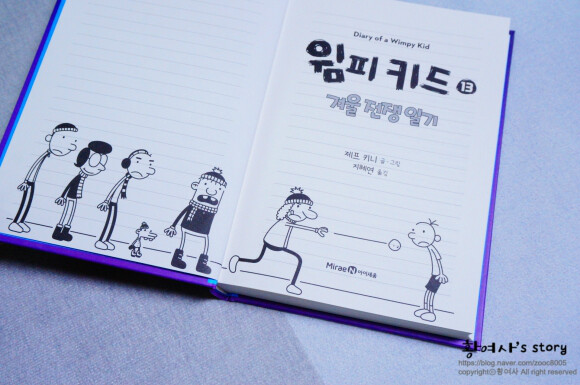 Diary of a Wimpy Kid
윔피 키드 13
겨울 전쟁 일기
제프 키니 글·그림
지혜연 옮김
MiraeN 아이세움
황여사's story
https://blog.naver.com/zooc8005
copyrightⓒ황여사 All right reserved